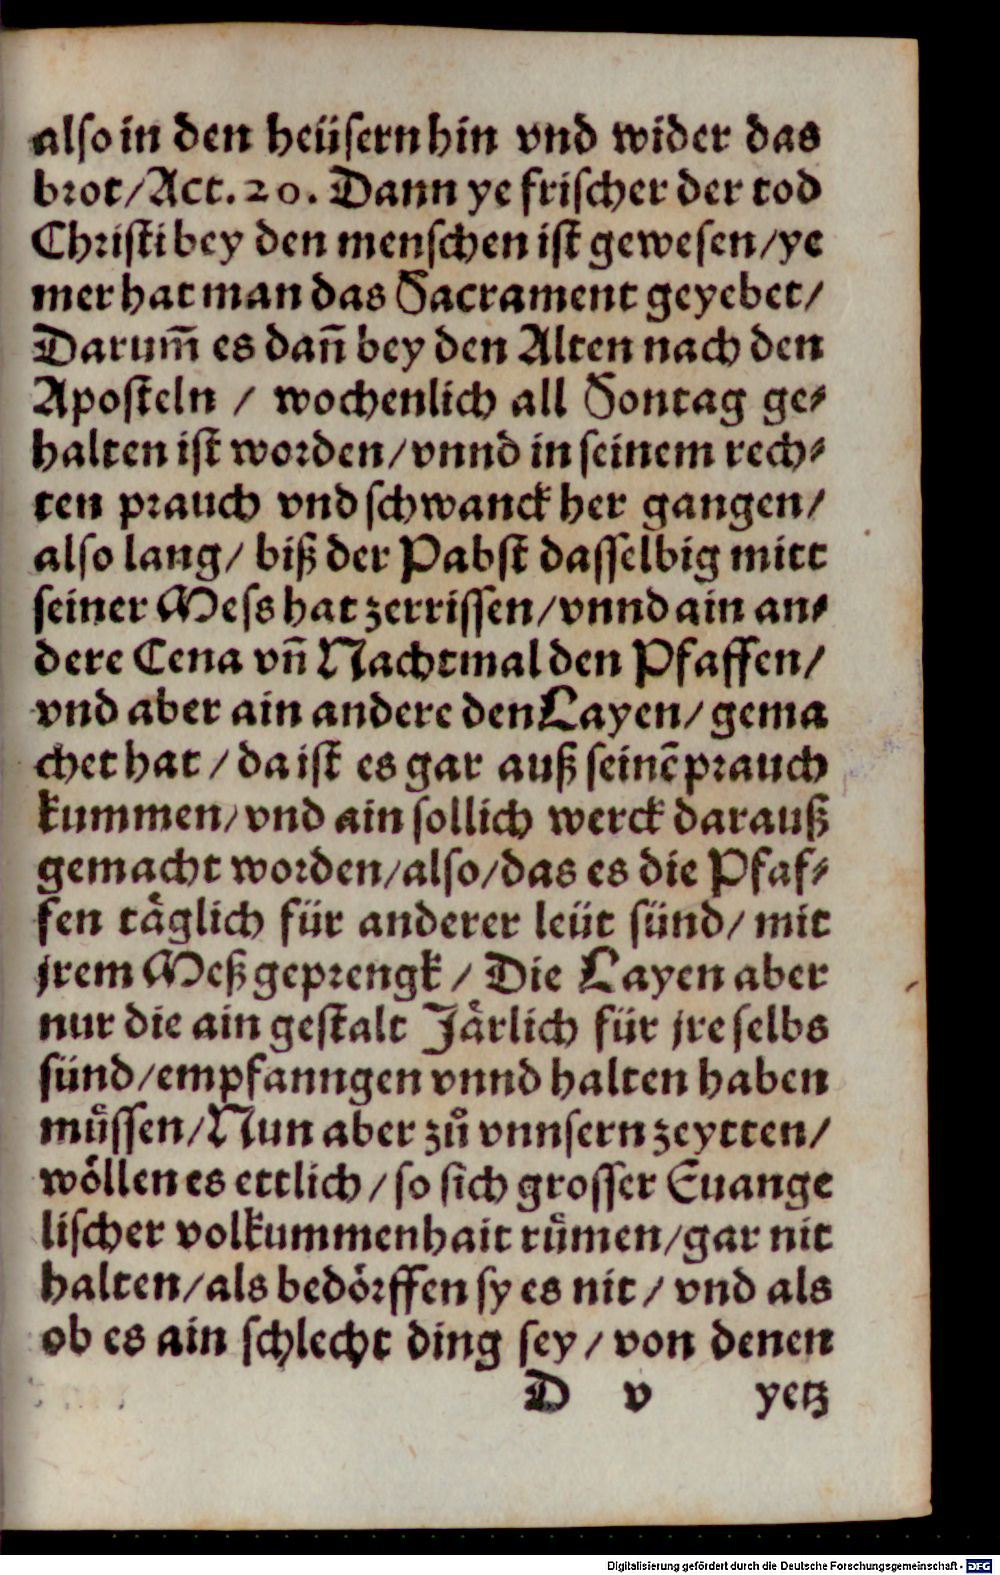 also in den heüsern hin vnd wider das
brot/Act. 20. Dann ye frischer der tod
Christi bey den menschen ist gewesen/ye
mer hat man das Sacrament geyebet/
Darum̃ es dañ bey den Alten nach den
Aposteln / wochenlich all Sontag ge⸗
halten ist worden/vnnd in seinem rech⸗
ten prauch vnd schwanck her gangen/
also lang/ biß der Pabst dasselbig mitt
seiner Mess hat zerrissen/vnnd ain an⸗
dere Cena vñ Nachtmal den Pfaffen/
vnd aber ain andere den Layen/ gema
chet hat / da ist es gar auß seinẽ prauch
kummen/vnd ain sollich werck darauß
gemacht worden/also/das es die Pfaf⸗
fen taͤglich für anderer leüt sünd/ mit
jrem Meß geprengk / Die Layen aber
nur die ain gestalt Jaͤrlich für jre selbs
sünd/empfanngen vnnd halten haben
muͤssen/Nun aber zuͦ vnnsern zeytten/
woͤllen es ettlich / so sich grosser Euange
lischer volkummenhait ruͤmen/gar nit
halten/als bedoͤrffen sy es nit / vnd als
ob es ain schlecht ding sey / von denen
D v yetz
Digitalisierung gefördert durch die Deutsche Forschungsgemeinschaft - DFG